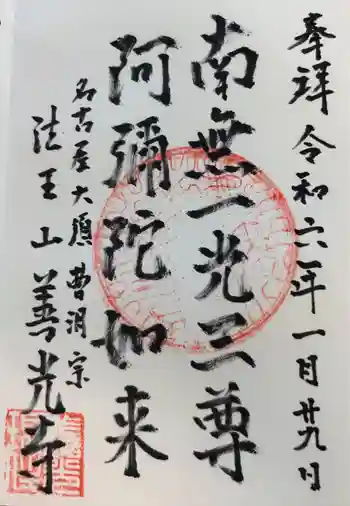 奉拝 令和六年一月廿九日
南無一光三尊
阿彌陀如来
名古屋大應 曹洞宗
法王山 善光寺